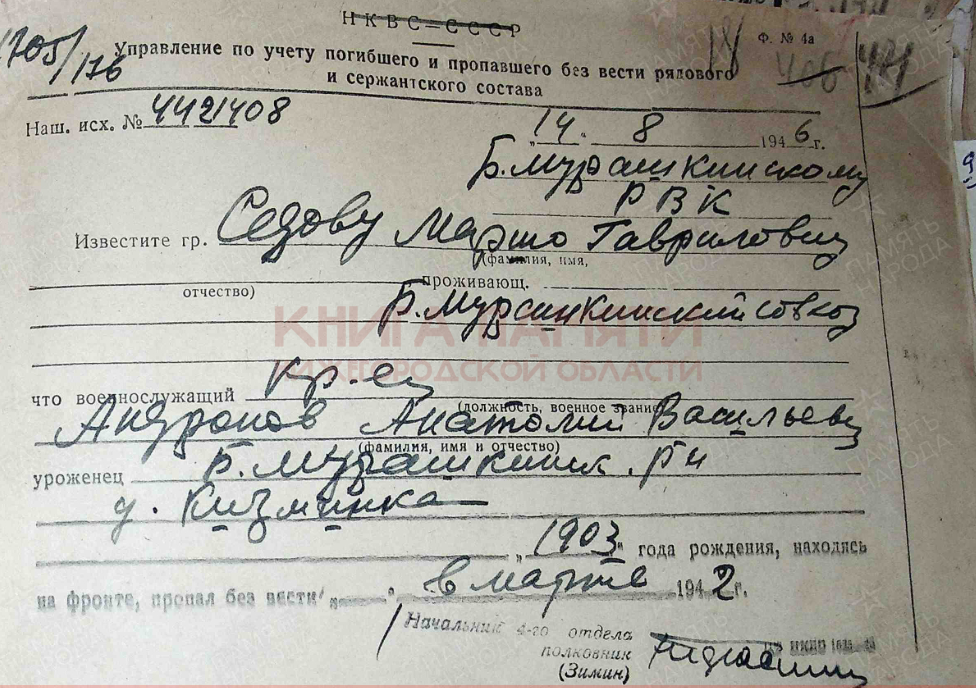 НКВС–СССР
1705/176
Управление по учету погибшего и пропавшего без вести рядового
и сержантского состава
Ф. № 4а
406
Наш. исх. № 4421408
„14“ 8 1946 г.
Б.Мурашкинскому
РВК
Известите гр. Седову Марию Гавриловну
(фамилия, имя,
отчество)
проживающ.
Б.Мурашкинский совхоз
КНИГА ПАМЯТИ
НИЖЕГОРОДСКОЙ ОБЛАСТИ
что военнослужащий кр-ец
(должность, военное звание)
Андронов Анатолий Васильевич
(фамилия, имя и отчество)
уроженец Б.Мурашкинск. р-н
д. Кизминка
„1903“ года рождения, находясь
на фронте, пропал без вести „ “ в марте 1942 г.
Начальник 4-го отдела
полковник
(Зимин)